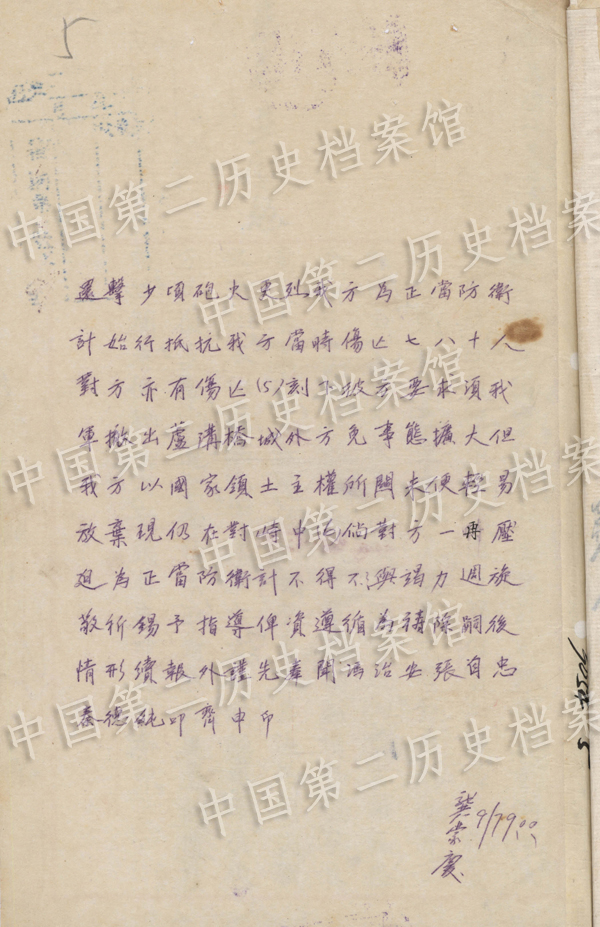 5
還擊少頃砲火更烈我方為正當防衛
計始行抵抗我方當時傷亡七八十人
對方亦有傷亡(5)刻下彼方要求須我
軍撤出蘆溝橋城外方免事態擴大但
我方以國家領土主權所關未便輕易
放棄現仍在對峙中化倘對方一再壓
迫為正當防衛計不得不與竭力週旋
敬祈錫予指導俾資遵循為禱除嗣後
情形續報外謹先奉聞馮治安張自忠
秦德純叩齊申印
龔宗慶
9/7 19.00
中国第二历史档案馆